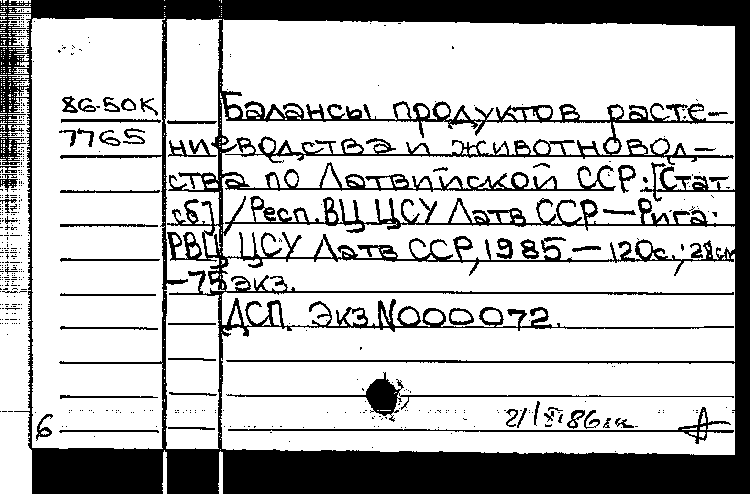 86-50К Балансы продуктов расте-
7765 ниеводства и животновод-
ства по Латвийской ССР: [Стат.
сб.] / Респ. ВЦ ЦСУ Латв ССР — Рига:
РВЦ ЦСУ Латв ССР, 1985. — 120с.; 28см
— 75 экз.
ДСП. Экз. N000072.
6